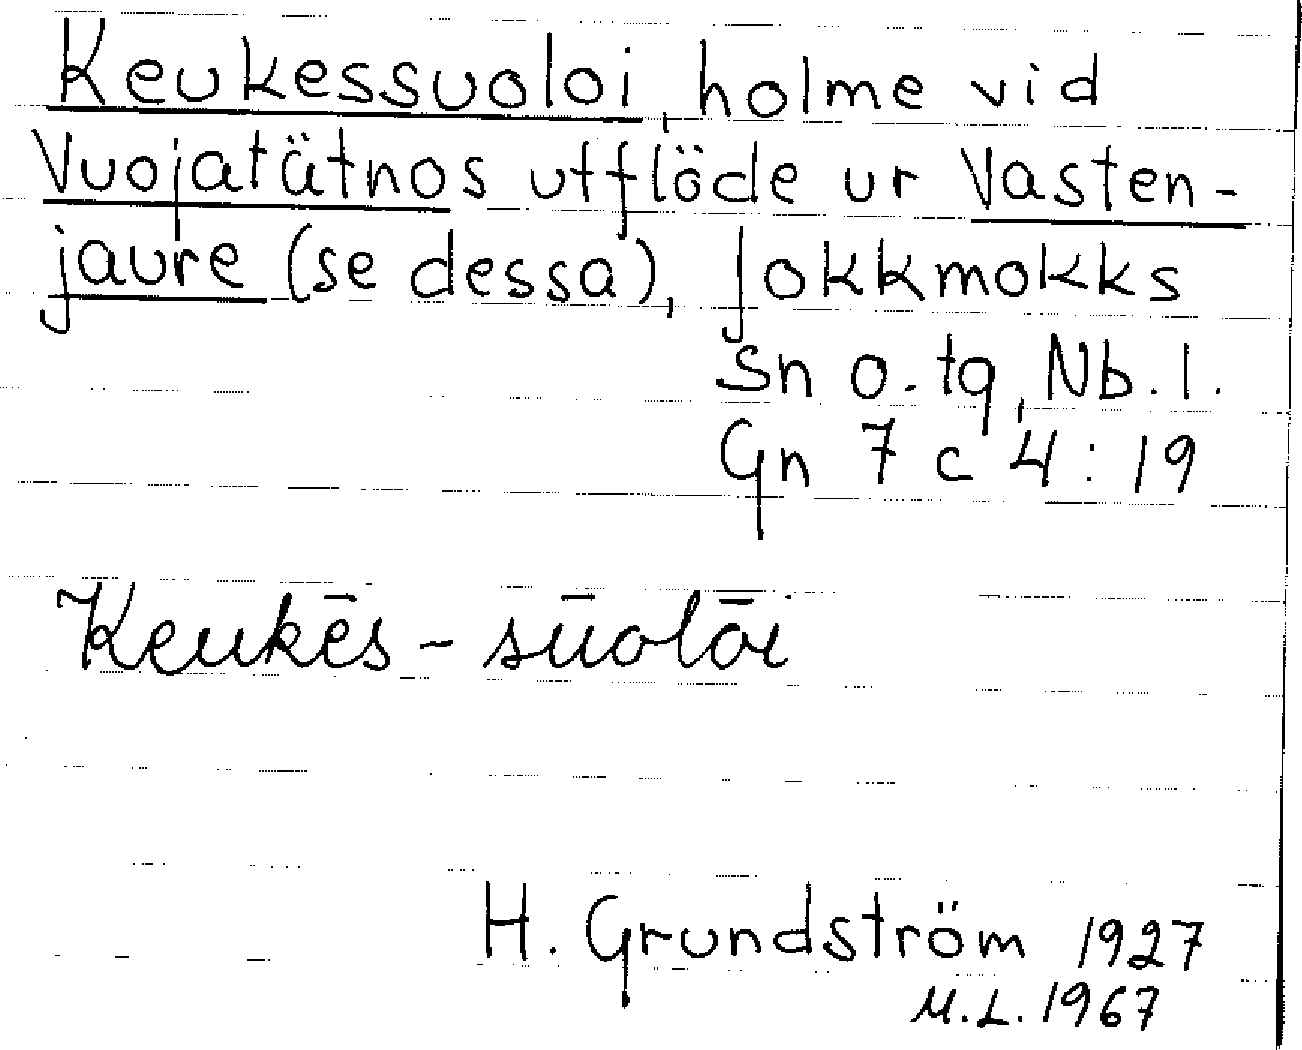 Keukessuoloi, holme vid
Vuojatätnos utflöde ur Vasten-
jaure (se dessa), Jokkmokks
Sn o. tg, Nb. l.
Gn 7 c 4 : 19
Keukēs - sūolōi
H. Grundström 1927
M.L. 1967